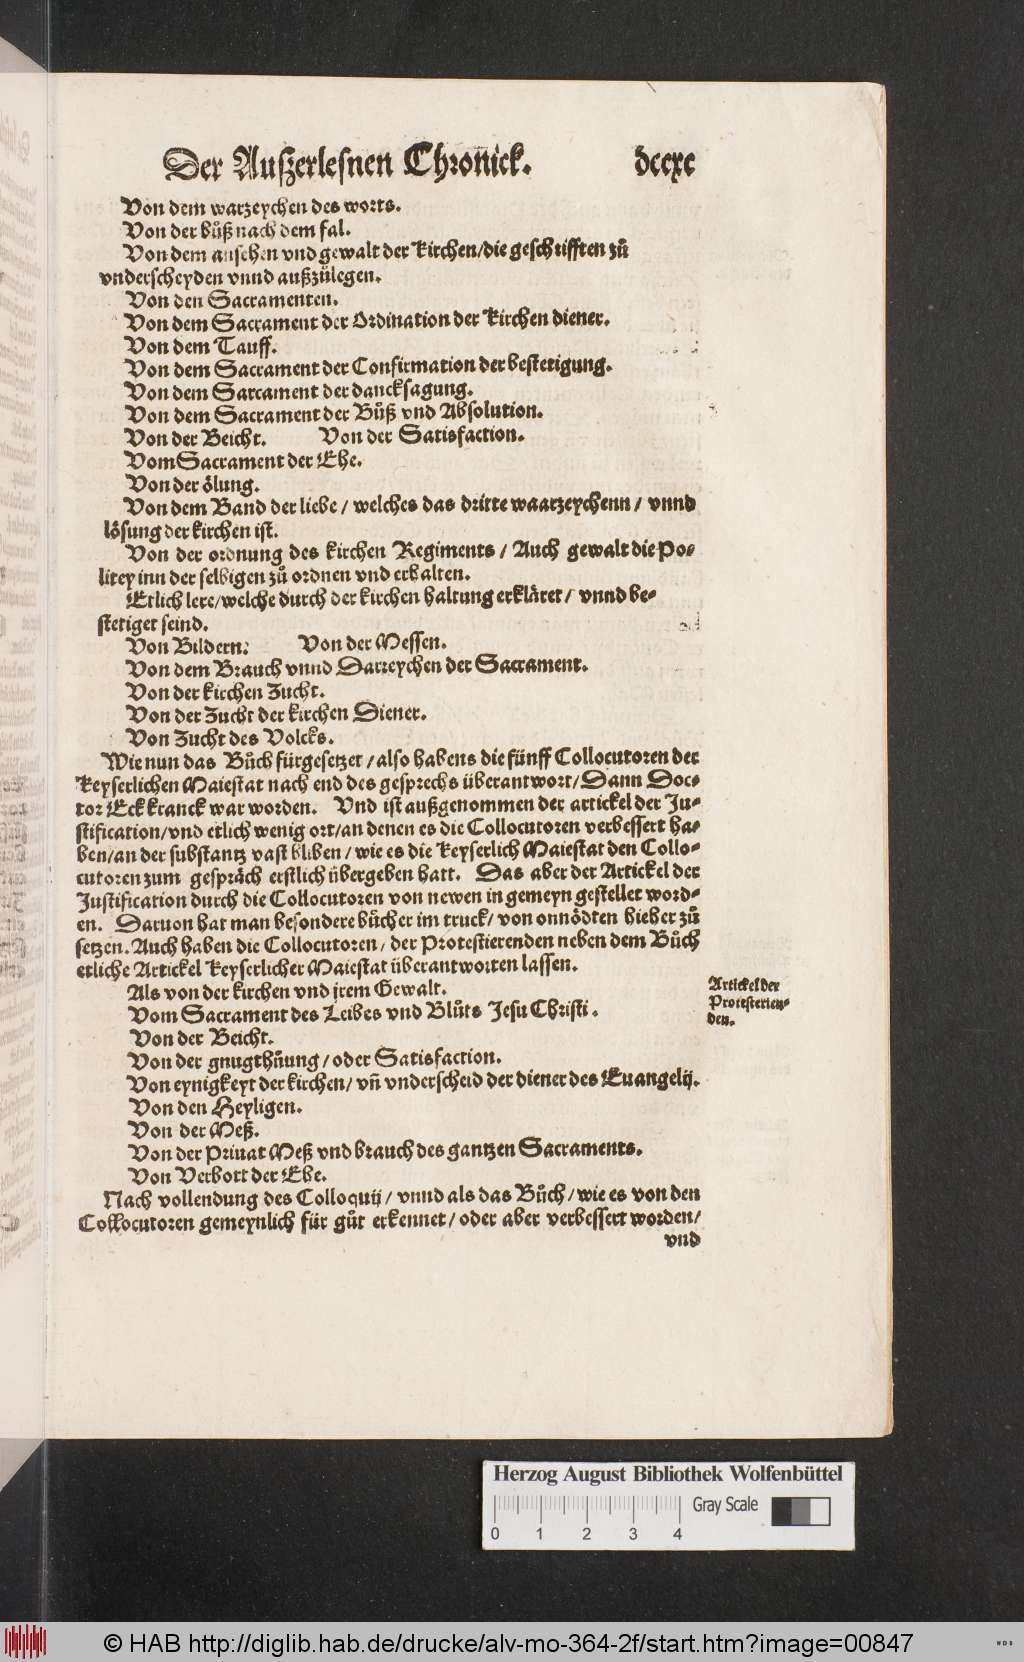 Der Außerlesnen Chronick. dccxc
Von dem warzeychen des worts.
Von der bůß nach dem fal.
Von dem ansehen vnd gewalt der Kirchen/die geschrifften zů
vnderscheyden vnnd außzůlegen.
Von den Sacramenten.
Von dem Sacrament der Ordination der Kirchen diener.
Von dem Tauff.
Von dem Sacrament der Confirmation der bestetigung.
Von dem Sarcament der dancksagung.
Von dem Sacrament der Bůß vnd Absolution.
Von der Beicht. Von der Satisfaction.
Vom Sacrament der Ehe.
Von der ölung.
Von dem Band der liebe / welches das dritte waarzeychenn / vnnd
lösung der kirchen ist.
Von der ordnung des kirchen Regiments / Auch gewalt die Po⸗
litey inn der selbigen zů ordnen vnd erhalten.
Etlich lere/welche durch der kirchen haltung erkläret / vnnd be⸗
stetiget seind.
Von Bildern. Von der Messen.
Von dem Brauch vnnd Darreychen der Sacrament.
Von der kirchen Zucht.
Von der Zucht der kirchen Diener.
Von Zucht des Volcks.
Wie nun das Bůch fürgesetzet / also habens die fünff Collocutoren der
Keyserlichen Maiestat nach end des gesprechs überantwort/ Dann Doc⸗
tor Eck kranck war worden. Vnd ist außgenommen der artickel der Ju⸗
stification/vnd etlich wenig ort/an denen es die Collocutoren verbessert ha⸗
ben/an der substantz vast bliben / wie es die Keyserlich Maiestat den Collo⸗
cutoren zum gespräch erstlich übergeben hatt. Das aber der Artickel der
Justification durch die Collocutoren von newen in gemeyn gestellet word⸗
en. Daruon hat man besondere bůcher im truck/ von onnödten hieher zů
setzen. Auch haben die Collocutoren/ der Protestierenden neben dem Bůch
etliche Artickel Keyserlicher Maiestat überantworten lassen.
Als von der kirchen vnd jrem Gewalt.
Vom Sacrament des Leibes vnd Blůts Jesu Christi.
Von der Beicht.
Von der gnugthůung / oder Satisfaction.
Von eynigkeyt der kirchen/ vñ vnderscheid der diener des Euangelij.
Von den Heyligen.
Von der Meß.
Von der Priuat Meß vnd brauch des gantzen Sacraments.
Von Verbott der Ehe.
Nach vollendung des Colloquij / vnnd als das Bůch / wie es von den
Collocutoren gemeynlich für gůt erkennet / oder aber verbessert worden/
vnd
Artickel der
Protesterien⸗
den.
Herzog August Bibliothek Wolfenbüttel
Gray Scale
0 1 2 3 4
© HAB http://diglib.hab.de/drucke/alv-mo-364-2f/start.htm?image=00847